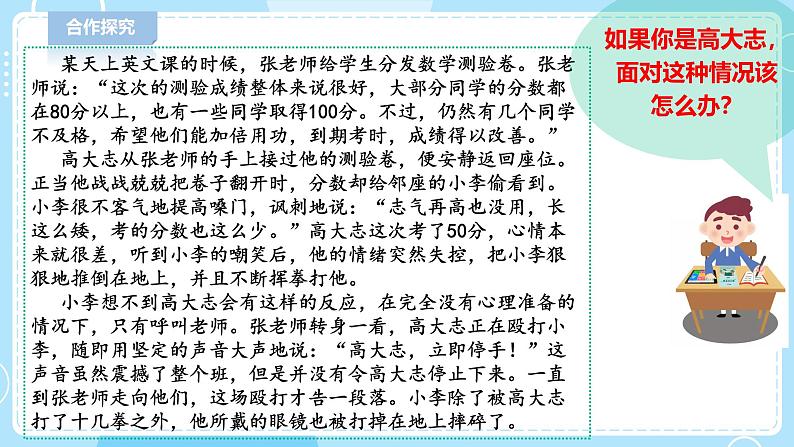 合作探究
某天上英文课的时候，张老师给学生分发数学测验卷。张老
师说：“这次的测验成绩整体来说很好，大部分同学的分数都
在80分以上，也有一些同学取得100分。不过，仍然有几个同学
不及格，希望他们能倍加用功，到期考时，成绩得以改善。”
高大志从张老师的手上接过他的测验卷，便安静返回座位。
正当他战战兢兢把卷子翻开时，分数却给邻座的小李偷看到。
小李很不客气地提高嗓门，讽刺地说：“志气再高也没用，长
这么矮，考的分数也这么少。”高大志这次考了50分，心情本
来就很差，听到小李的嘲笑后，他的情绪突然失控，把小李狠
狠地推倒在地上，并且不断挥拳打他。
小李想不到高大志会有这样的反应，在完全没有心理准备的
情况下，只有呼叫老师。张老师转身一看，高大志正在殴打小
李，随即用坚定的声音大声地说：“高大志，立即停手！”这
声音虽然震撼了整个班，但是并没有令高大志停止下来。一直
到张老师走向他们，这场殴打才告一段落。小李除了被高大志
打了十几拳之外，他所戴的眼镜也被打掉在地上摔碎了。
如果你是高大志，
面对这种情况该
怎么办？